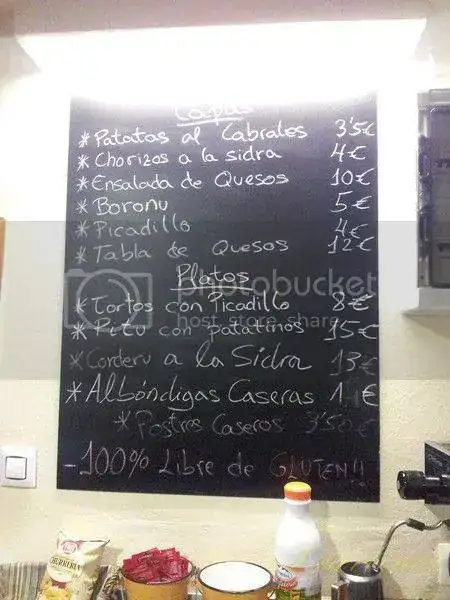 * Patatas al Cabrales 3'5€
* Chorizos a la sidra 4€
* Ensalada de Quesos 10€
* Boronu 5€
* Picadillo 4€
* Tabla de Quesos 12€
Platos
* Tortos con Picadillo 8€
* Pitu con patatinos 15€
* Corderu a la Sidra 13€
* Albóndigas Caseras
* Postres Caseros 3'50€
- 100% Libre de GLUTEN!!
photobucket
host. store. share.